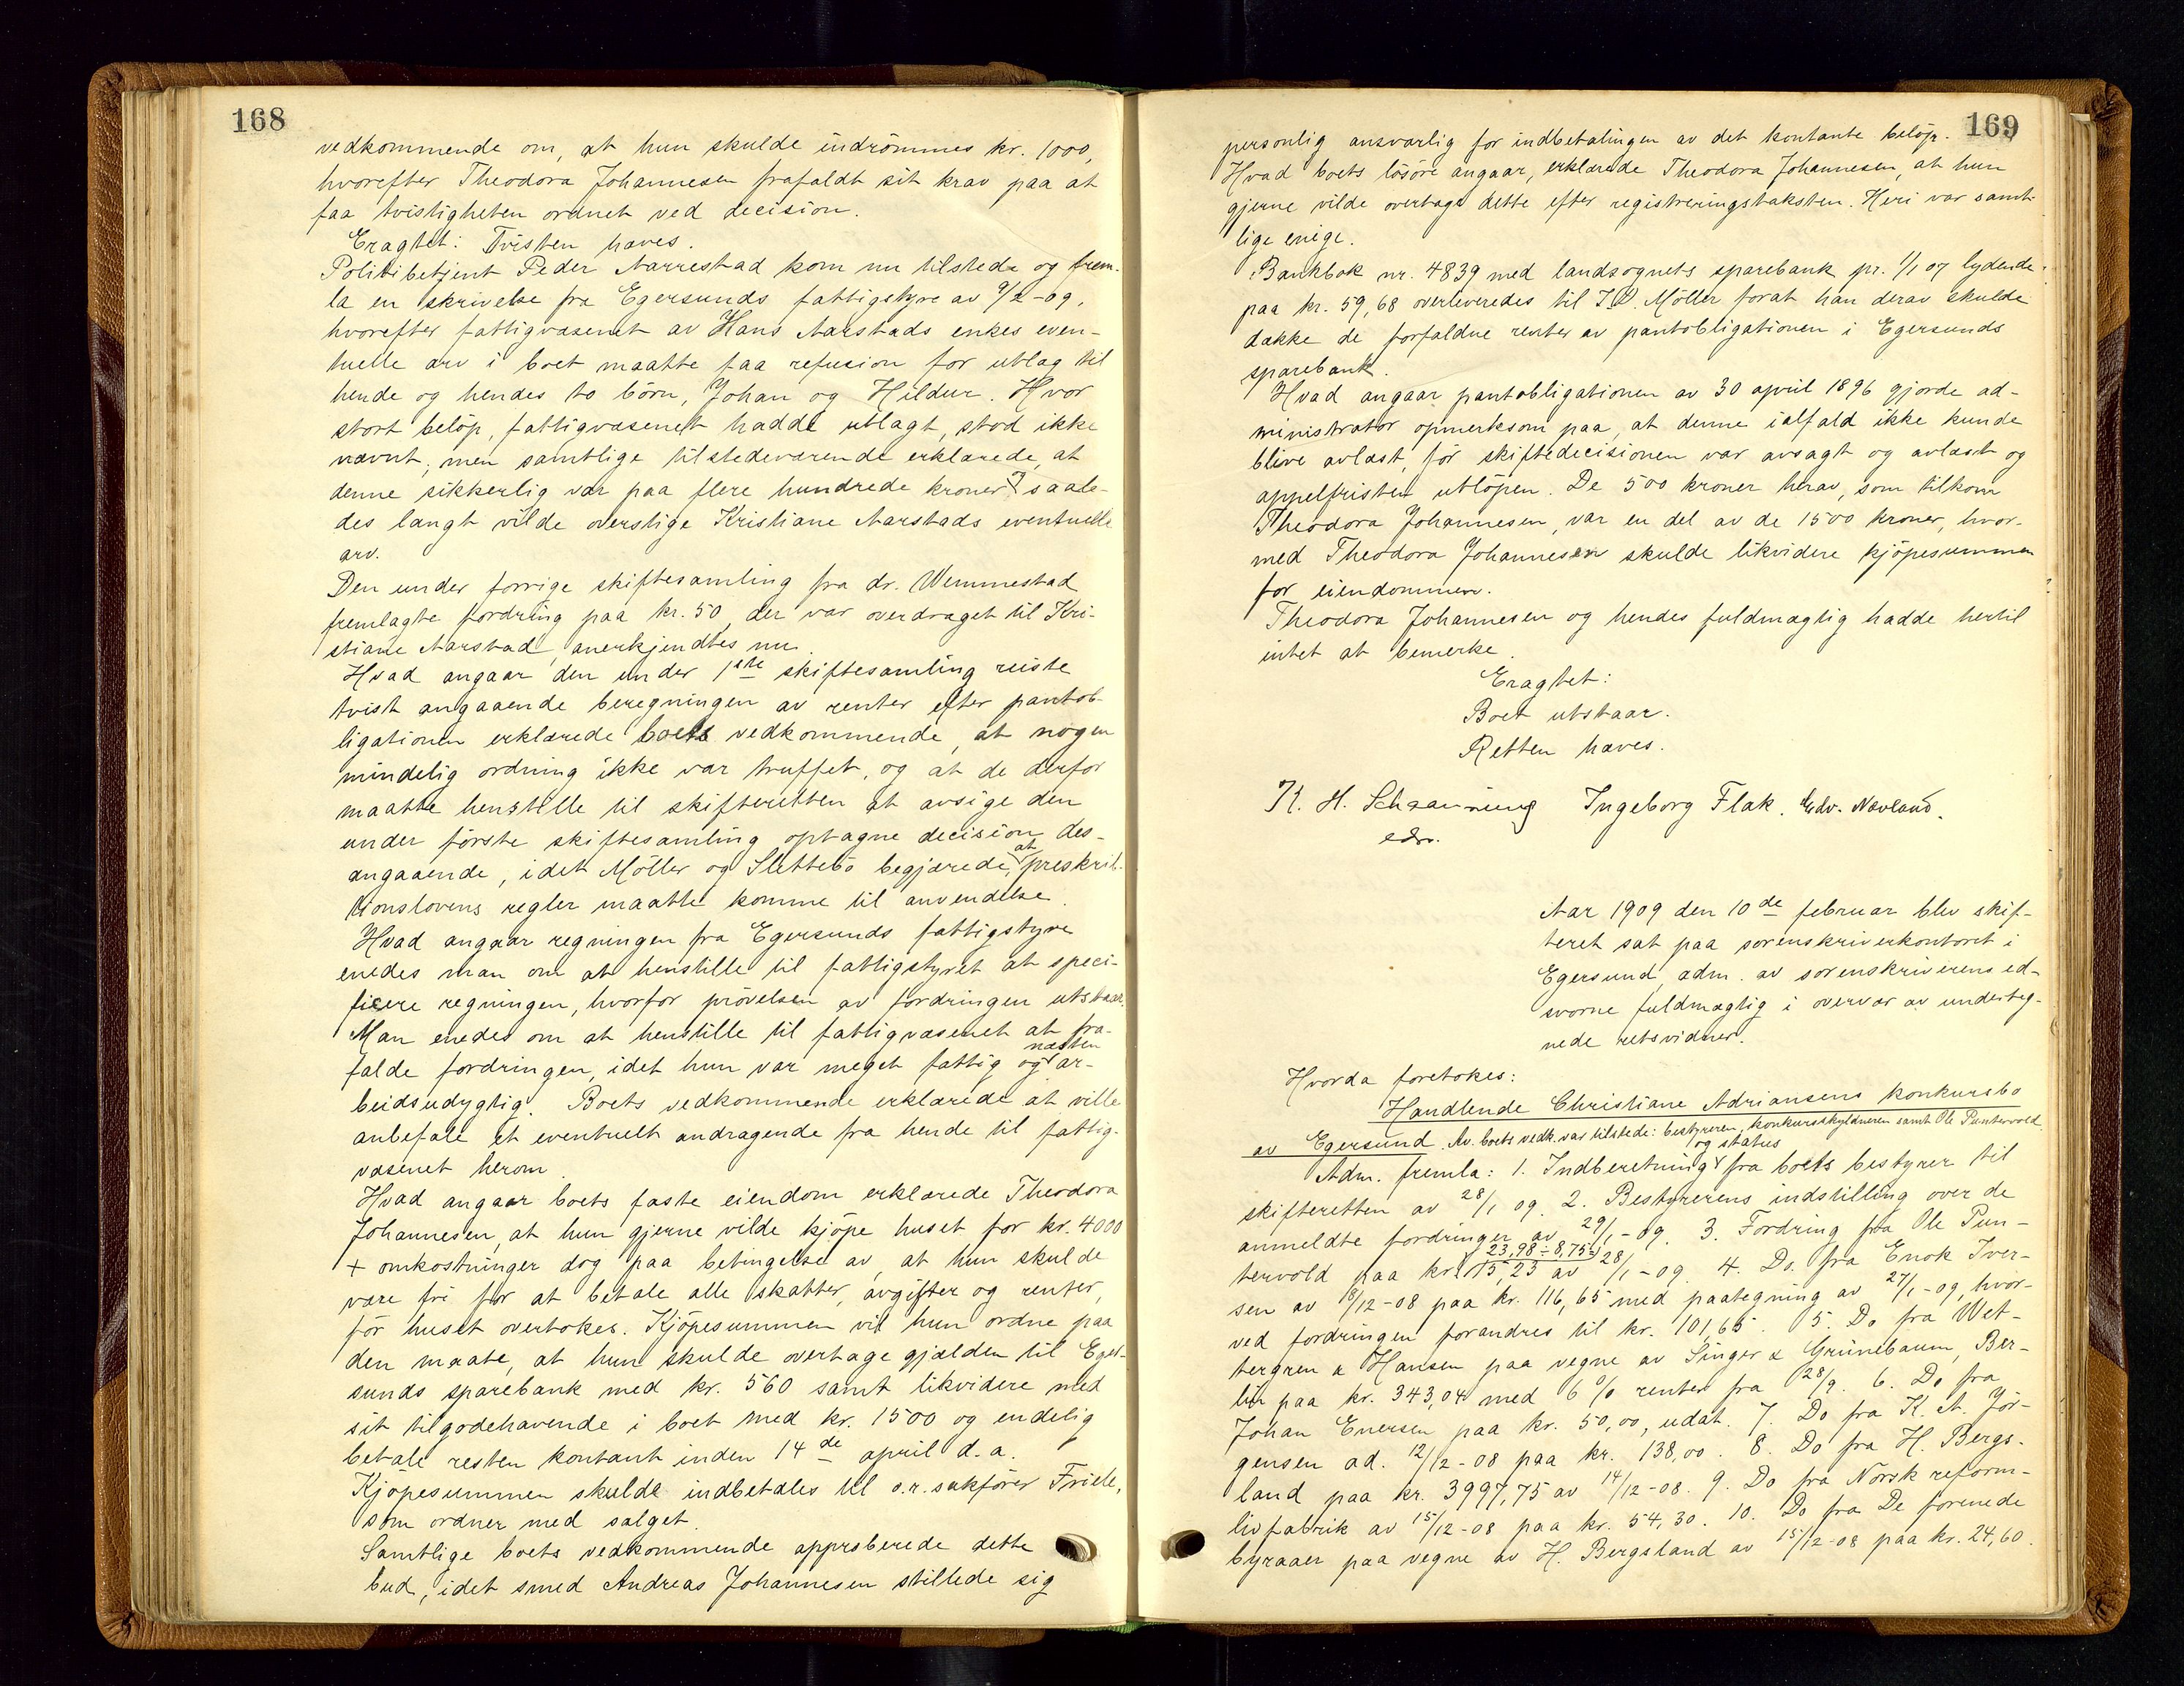 168
vedkommende om, at hun skulde indrömmes kr. 1000,
hvorefter Theodora Johannesen frafaldt sit krav paa at
faa tvistigheten ordnet ved decision.
Eragtet: Tvisten hæves.
Politibetjent Peder Aarrestad kom nu tilstede og frem-
la en skrivelse fra Egersunds fattigstyre av 9/2-09,
hvorefter fattigvæsenet av Hans Aarstads enkes even-
tuelle arv i boet maatte faa refusion for utlæg til
hende og hendes to börn, Johan og Hildur. Hvor
stort belöp, fattigvæsenet hadde utlagt, stod ikke
nævnt, men samtlige tilstedeværende erklærede, at
denne sikkerlig var paa flere hundrede kroner, saale-
des langt vilde overstige Kristiane Aarstads eventuelle
arv.
Den under forrige skiftesamling fra dr. Wemmestad
fremlagte fordring paa kr. 50, der var overdraget til Kri-
stiane Aarstad, anerkjendtes nu.
Hvad angaar den under 1ste skiftesamling reiste
tvist angaaende beregningen av renter efter pantob-
ligationen erklærede boets vedkommende, at nogen
mindelig ordning ikke var truffet, og at de derfor
maatte henstille til skifteretten at avsige den
under förste skiftesamling optagne decision des-
angaaende, idet Möller og Slettebö begjærede, at preskrib-
tionslovens regler maatte komme til anvendelse.
Hvad angaar regningen fra Egersunds fattigstyre
enedes man om at henstille til fattigstyret at speci-
ficere regningen, hvorfor prövelsen av fordringen utstaar.
Man enedes om at henstille til fattigvæsenet at fra-
falde fordringen, idet hun var meget fattig og næsten ar-
beidsudygtig. Boets vedkommende erklærede at ville
anbefale et eventuelt andragende fra hende til fattig-
væsenet herom.
Hvad angaar boets faste eiendom erklærede Theodora
Johannesen, at hun gjerne vilde kjöpe huset for kr. 4000
+ omkostninger dog paa betingelse av, at hun skulde
være fri for at betale alle skatter, avgifter og renter,
för huset overtokes. Kjöpesummen vil hun ordne paa
den maate, at hun skulde overtage gjælden til Eger-
sunds sparebank med kr. 560 samt likvidere med
sit tilgodehavende i boet med kr. 1500 og endelig
betale resten kontant inden 14de april d. a.
Kjöpesummen skulde indbetales til o.r. sakförer Friele,
som ordner med salget.
Samtlige boets vedkommende approberede dette
bud, idet smed Andreas Johannesen stillede sig
169
personlig ansvarlig for indbetalingen av det kontante belöp.
Hvad boets lösöre angaar, erklærede Theodora Johannesen, at hun
gjerne vilde overtage dette efter registreringstaksten. Heri var samt-
lige enige.
Bankbok nr. 4839 med landsognets sparebank pr. 1/1 07 lydende
paa kr. 59,68 overleveredes til I. D. Möller forat han derav skulde
dække de forfaldne renter av pantobligationen i Egersunds
sparebank.
Hvad angaar pantobligationen av 30 april 1896 gjorde ad-
ministrator opmerksom paa, at denne ialfald ikke kunde
blive avlæst, för skiftedecisionen var avsagt og avlæst og
appelfristen utlöpen. De 500 kroner herav, som tilkom
Theodora Johannesen, var en del av de 1500 kroner, hvor-
med Theodora Johannesen skulde likvidere kjöpesummen
for eiendommen.
Theodora Johannesen og hendes fuldmægtig hadde hertil
intet at bemerke.
Eragtet:
Boet utstaar.
Retten hæves.
K. H. Schaanning Ingeborg Flak. Edv. Nævland.
edsv.
Aar 1909 den 10de februar blev skif-
teret sat paa sorenskriverkontoret i
Egersund, adm. av sorenskriverens ed-
svorne fuldmægtig i overvær av underteg-
nede retsvidner.
Hvorda foretokes:
Handlende Christiane Adriansens konkursbo
av Egersund. Av boets vedk. var tilstede: bestyreren, konkursskyldneren samt Ole Puntervold
Adm. fremla: 1. Indberetning og status fra boets bestyrer til
skifteretten av 28/1 09. 2. Bestyrerens indstilling over de
anmeldte fordringer av 29/1-09. 3. Fordring fra Ole Pun-
tervold paa kr. 23,98 ÷ 8,75 = 15,23 av 28/1-09. 4. Do. fra Enok Iver-
sen av 18/12-08 paa kr. 116,65 med paategning av 27/1-09, hvor-
ved fordringen forandres til kr. 101,65. 5. Do fra Wet-
tergren & Hansen paa vegne av Singer & Grünebaum, Ber-
lin paa kr. 343,04 med 6 % renter fra 28/9. 6. Do fra
Johan Enersen paa kr. 50,00, udat. 7. Do fra K. A. Jör-
gensen ad. 12/12-08 paa kr. 138,00. 8. Do fra H. Bergs-
land paa kr. 3997,75 av 14/12-08. 9. Do fra Norsk reform-
livfabrik av 15/12-08 paa kr. 54,30. 10. Do fra De forenede
byraaer paa vegne av H. Bergsland av 15/12-08 paa kr. 24,60.